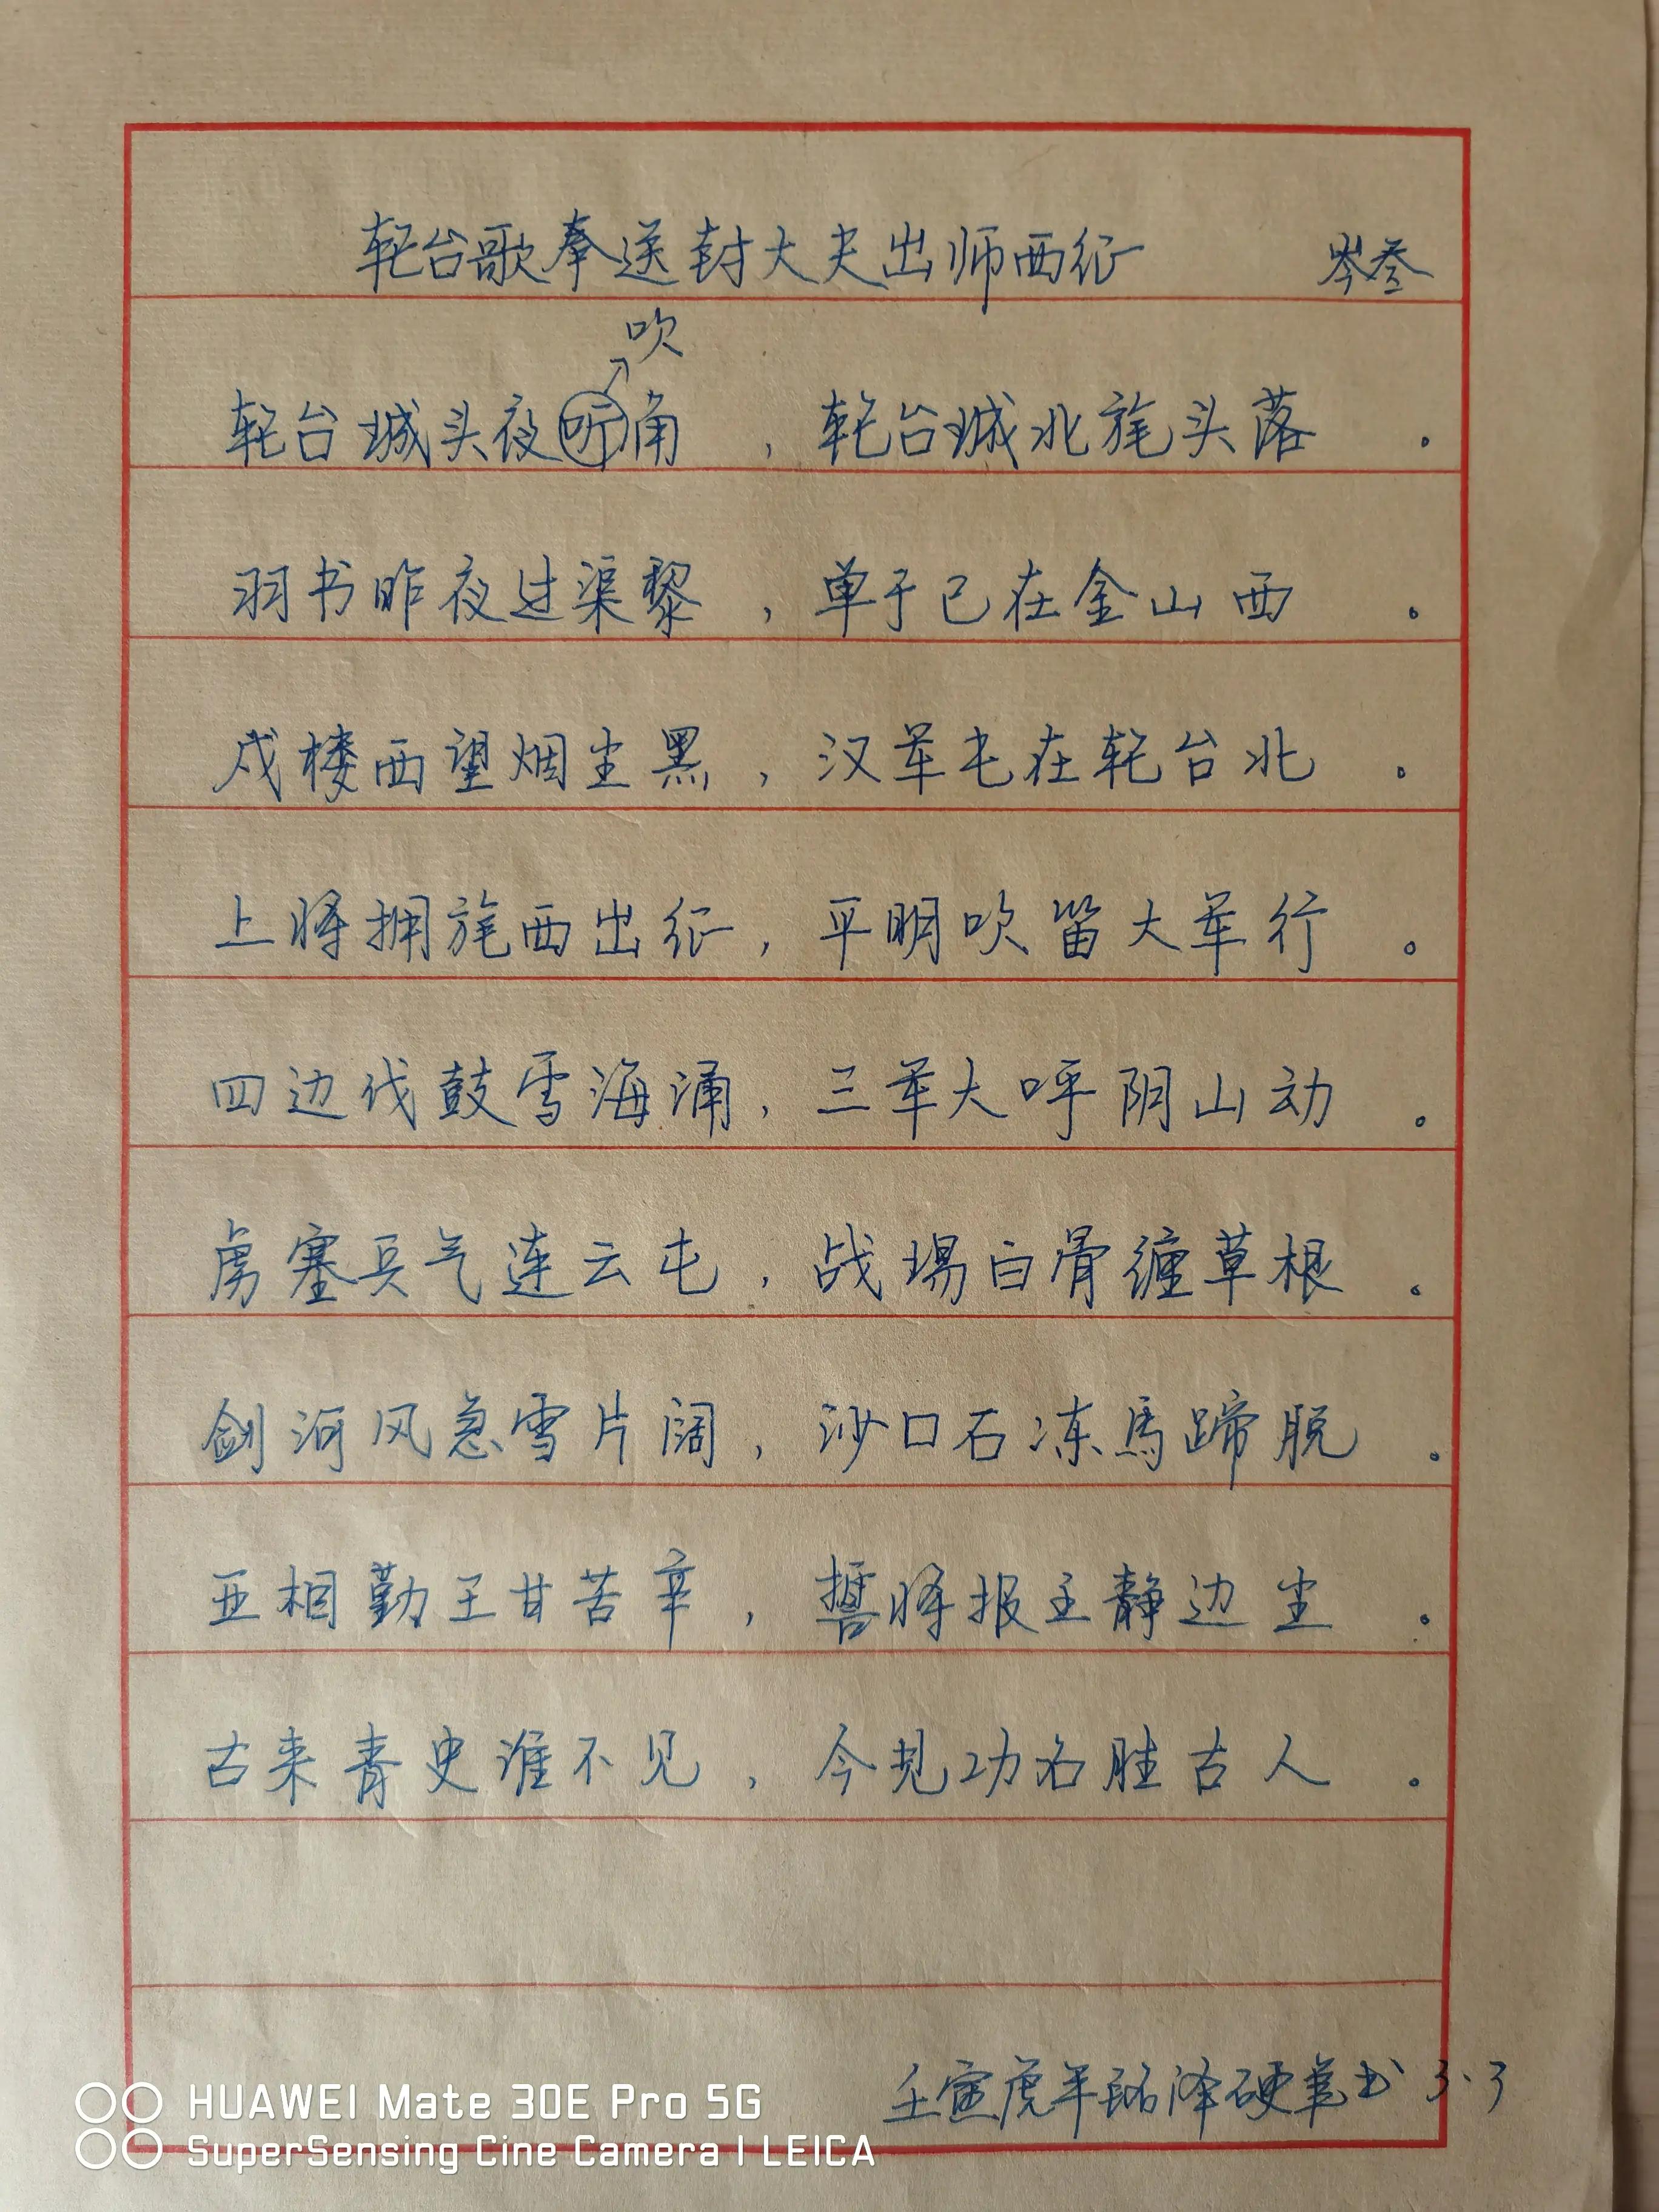 轮台歌奉送封大夫出师西征 岑参
吹
轮台城头夜听角，轮台城北旄头落。
羽书昨夜过渠黎，单于已在金山西。
戍楼西望烟尘黑，汉军屯在轮台北。
上将拥旄西出征，平明吹笛大军行。
四边伐鼓雪海涌，三军大呼阴山动。
虏塞兵气连云屯，战场白骨缠草根。
剑河风急雪片阔，沙口石冻马蹄脱。
亚相勤王甘苦辛，誓将报主静边尘。
古来青史谁不见，今见功名胜古人。
壬寅虎年 泽硬笔书 3·3
HUAWEI Mate 30E Pro 5G
SuperSensing Cine Camera | LEICA